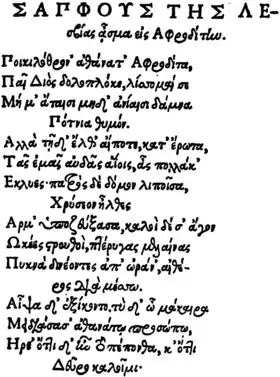 ΣΑΠΦΟΥΣ ΤΗΣ ΛΕ-
σβίας ᾆσμα εἰς Ἀφροδίτην.
Ποικιλόθρον' ἀθάνατ' Ἀφροδίτα,
Παῖ Διὸς δολοπλόκε, λίσσομαί σε
Μή μ' ἄταισι μηδ' ἀνίαισι δάμνα
Πότνια θυμόν.
Ἀλλὰ τῇδ' ἔλθ' αἴποτε, κατ' ἔρωτα,
Τᾶς ἐμᾶς αὐδᾶς ἀΐοις, ἃς πολλάκ'
Ἔκλυες· πατρὸς δὲ δόμον λιποῖσα,
Χρύσεον ἦλθες
Ἅρμ' ὑποζεύξασα, καλοὶ δέ σ' ἆγον
Ὠκέες στρουθοὶ, πτέρυγας μελαίνας
Πυκνὰ δινέοντες ἀπ' ὠράν', αἰθέ-
ρος διὰ μέσσω.
Αἶψα δ' ἐξίκοντο, τὺ δ' ὦ μάκαιρα
Μειδάσασ' ἀθανάτῳ προσώπῳ,
Ἤρε' ὅττι δ' ἦν ὃ πέπονθα, κ' ὅττι
Δεῦρο καλοῖμι·